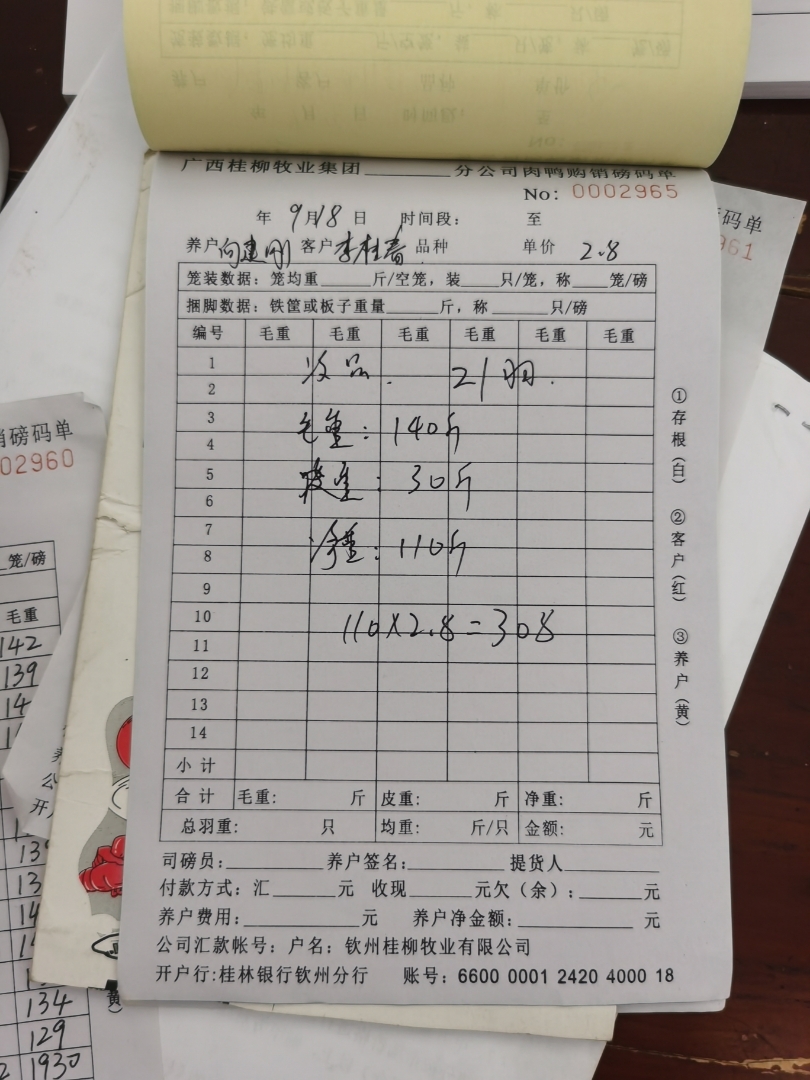 广西桂柳牧业集团________分公司肉鸭购销磅码单
No: 0002965
年 9月18日 时间段: 至
养户 向建刚 客户 李桂春 品种 单价 2.8
笼装数据: 笼均重____斤/空笼, 装____只/笼, 称____笼/磅
捆脚数据: 铁筐或板子重量____斤, 称____只/磅
编号 毛重 毛重 毛重 毛重 毛重 毛重
1
次品. 21羽.
2
3
毛重: 140斤
4
5
皮重: 30斤
6
7
净重: 110斤
8
9
10
110×2.8=308
11
12
13
14
小计
合计 毛重: 斤 皮重: 斤 净重: 斤
总羽重: 只 均重: 斤/只 金额: 元
司磅员:________ 养户签名:________ 提货人________
付款方式: 汇____元 收现____元欠(余):____元
养户费用:________元 养户净金额:________元
公司汇款帐号: 户名: 钦州桂柳牧业有限公司
开户行:桂林银行钦州分行 账号: 6600 0001 2420 4000 18
①存根(白) ②客户(红) ③养户(黄)
码单
961
销磅码单
02960
笼/磅
毛重
142
139
134
129
1930
黄)